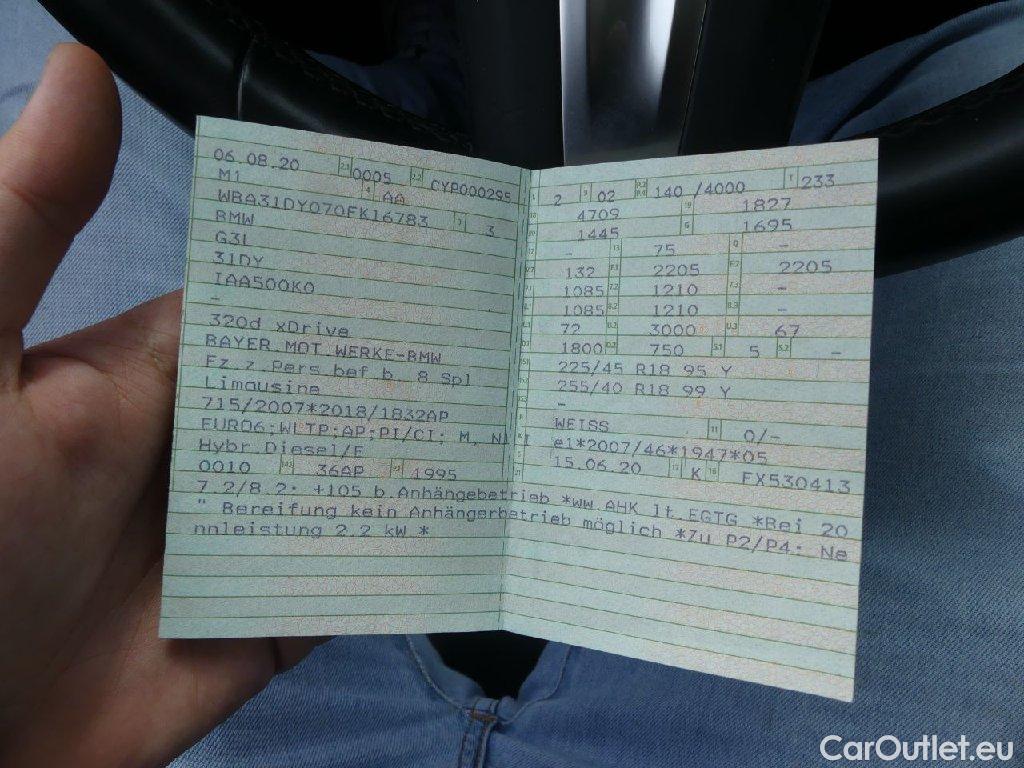 06.08.20 2.1 0005 2.2 CYP000295
M1 4 AA
WBA31DY070FK16783 3 3
BMW
G3L
31DY
IAA500K0
-
320d xDrive
BAYER.MOT.WERKE-BMW
Fz.z.Pers.bef.b. 8 Spl
Limousine
715/2007*2018/1832AP
EURO6;WLTP;AP;PI/CI; M, N1 I
Hybr.Diesel/E
0010 14.1 36AP P.1 1995
L 2 9 02 P.2 P.4 140 /4000 T 233
18 4709 19 1827
20 1445 G 1695
12 - 13 75 Q -
V.7 132 F.1 2205 F.2 2205
7.1 1085 7.2 1210 7.3 -
8.1 1085 8.2 1210 8.3 -
U.1 72 U.2 3000 U.3 67
O.1 1800 O.2 750 S.1 5 S.2 -
15.1 225/45 R18 95 Y
15.2 255/40 R18 99 Y
-
WEISS 11 0/-
K e1*2007/46*1947*05
6 15.06.20 17 K 16 FX530413
7.2/8.2: +105 b.Anhängebetrieb *ww.AHK lt.EGTG *Bei 20
" Bereifung kein Anhängerbetrieb möglich *Zu P2/P4: Ne
nnleistung 2.2 kW *
CarOutlet.eu